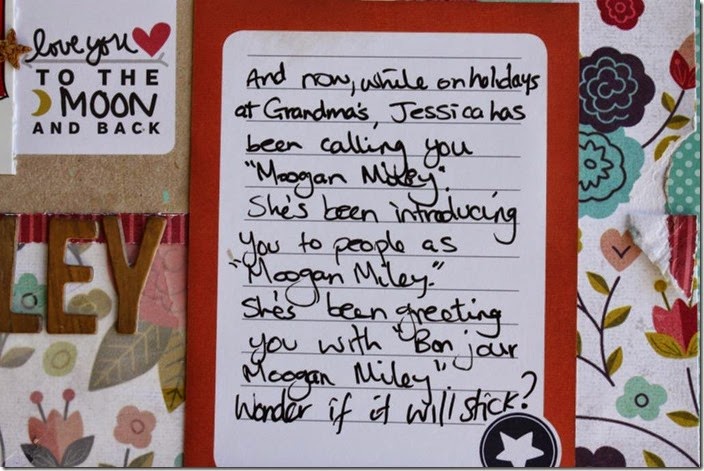 love you
TO THE
MOON
AND BACK
LEY
And now, while on holidays
at Grandma's, Jessica has
been calling you
"Moogan Miley".
She's been introducing
you to people as
"Moogan Miley."
She's been greeting
you with "Bon jour
Moogan Miley".
Wonder if it will stick?